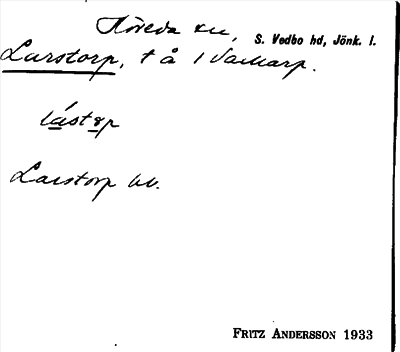 Höreda sn, S. Vedbo hd, Jönk. l.
Larstorp, t å 1 Vallarp.
lást
Larstorp
FRITZ ANDERSSON 1933